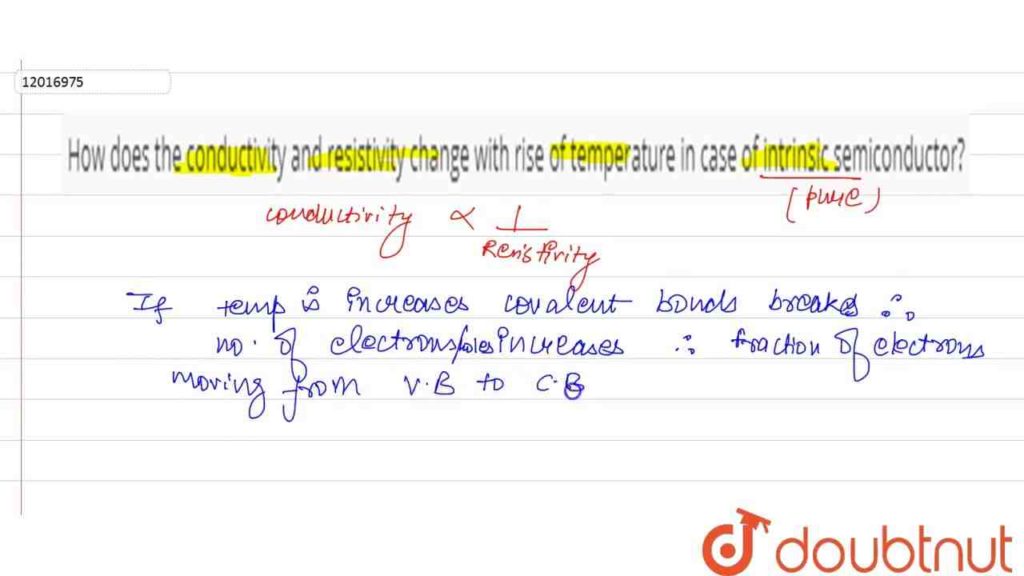 12016975
How does the conductivity and resistivity change with rise of temperature in case of intrinsic semiconductor?
(pure)
conductivity ∝ 1
Resistivity
If temp is increases covalent bonds breaks ∴
no. of electrons/holes increases ∴ fraction of electrons
moving from V.B to C.B
doubtnut